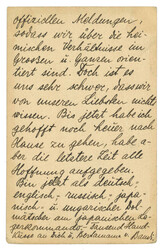 offiziellen Meldungen,
sodass wir über die hei-
mischen Verhältnisse im
Grossen u. Ganzen orien-
tiert sind. Doch ist es
uns sehr schwer, dass wir
von unseren Liebsten nichts
wissen. Bis jetzt habe ich
gehofft noch heuer nach
Hause zu gehen, habe a-
ber die letzte Zeit alle
Hoffnung aufgegeben.
Bin jetzt als deutsch,
englisch, russisch, japa-
nisch u. ungarischer Dol-
metscher am japanischen La-
gerkommando. Tausend Hand-
küsse an Dich u.